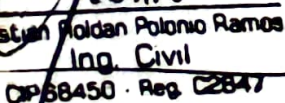 stian Roldan Polonio Ramos
Ing. Civil
CIP 68450 · Reg. C2847